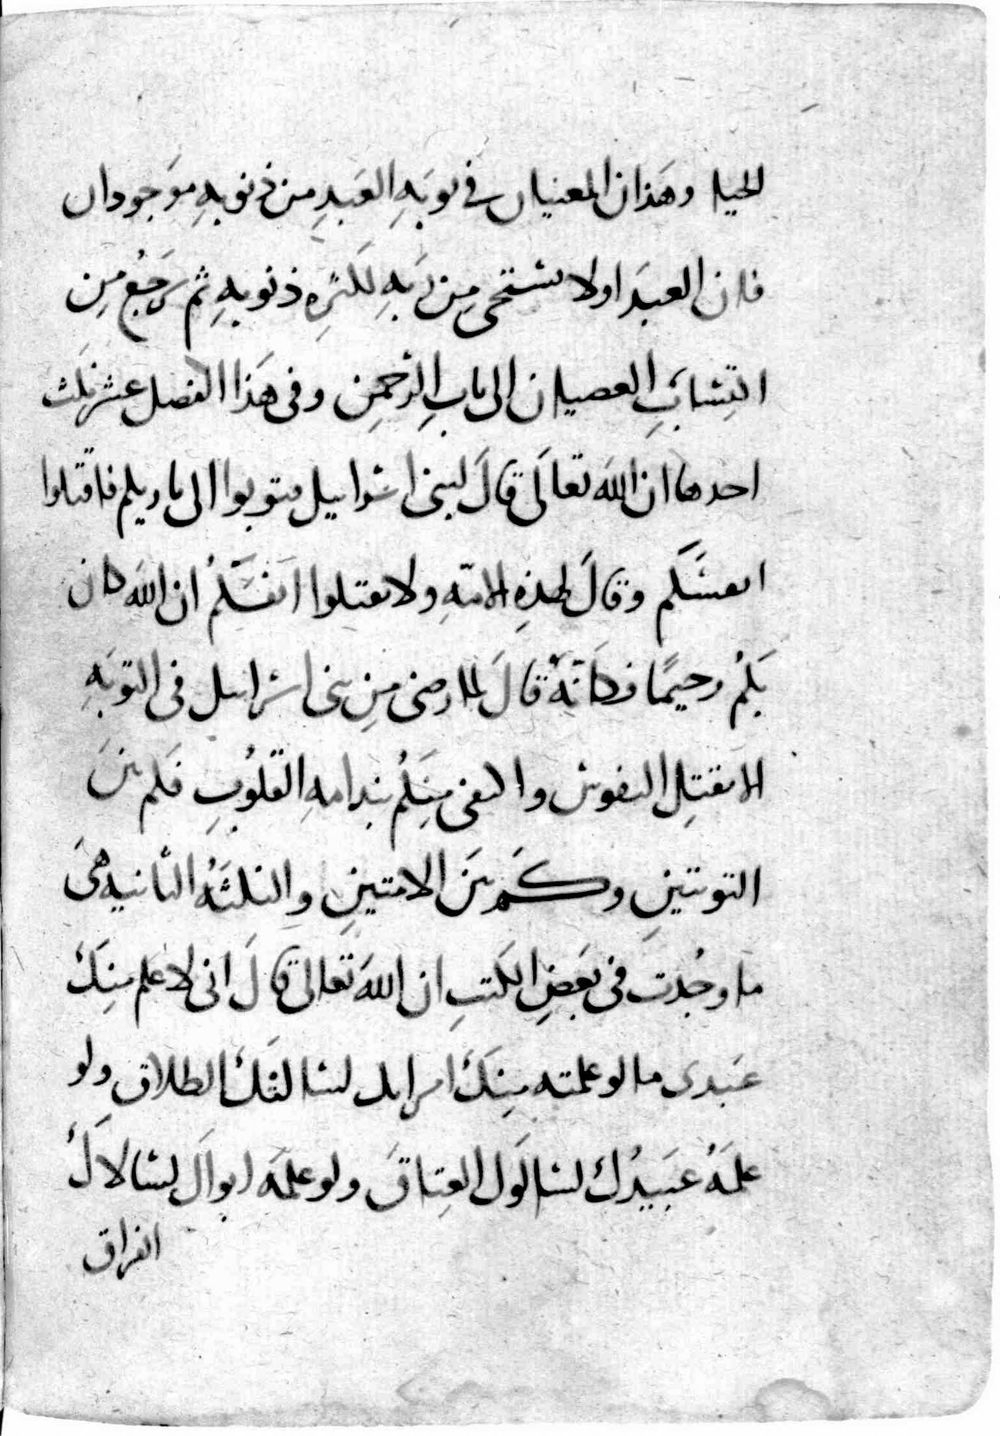 الحيا وهَذان المعنيان في توبَهِ العَبدِ من ذنوبهِ مَوجودان
فان العبدَ اولا يستحى مِن رَبهِ لكَثرهِ ذنوبهِ ثم يَرجَعُ مِن
اكتِسَابِ العصيان الى بابِ الرحمنِ وفى هَذا الفصل عشر نكت
احدها ان اللَه تعالَى قالَ لبنى اسرائيل فتوبوا الى باريكم فاقتلوا
انفسَكم وقالَ لهذِهِ الامّهِ ولا تقتلوا انفسَكمُ ان اللَه كان
بَكمُ رحيمًا فكانَهُ قالَ لا ارضى مِن بنى اسرائيل فى التوبَهِ
الا بقتلِ النفوس واكتفى مِنكمُ بندامهِ القلُوبِ فكم بَينَ
التوبتينِ وكَم بَينَ الامتينِ والنكتَهُ الثانيه هىَ
ما وجُدت فى بَعضِ الكتبِ ان اللَه تعالى قالَ انى لاعلم مِنكَ
عَبدى ما لو علمته مِنكَ امراتك لسالتكَ الطلاق ولو
علمَهُ عَبيدُك لسالوك العِتاقَ ولو علمَه ابواكَ لسالاكَ
الفراق